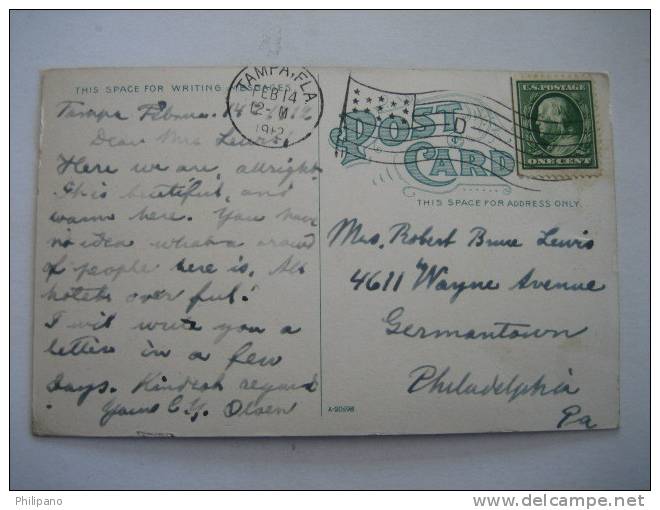 THIS SPACE FOR WRITING MESSAGES
TAMPA, FLA
FEB 14
12-M
1912
POST CARD
U.S. POSTAGE
ONE CENT
THIS SPACE FOR ADDRESS ONLY.
Tampa 14
Dear Mrs Lewis,
Here we are, allright
It is beutiful, and
warm here. You have
no idea what a crowd
of people here is. All
hotels over ful!
I wil write you a
letter in a few
days. Kindest regard
Yours Olsen
Mrs. Robert Bruce Lewis
4611 Wayne Avenue
Germantown
Philadelphia
Pa
A-20698
Philipano
www.delcampe.net